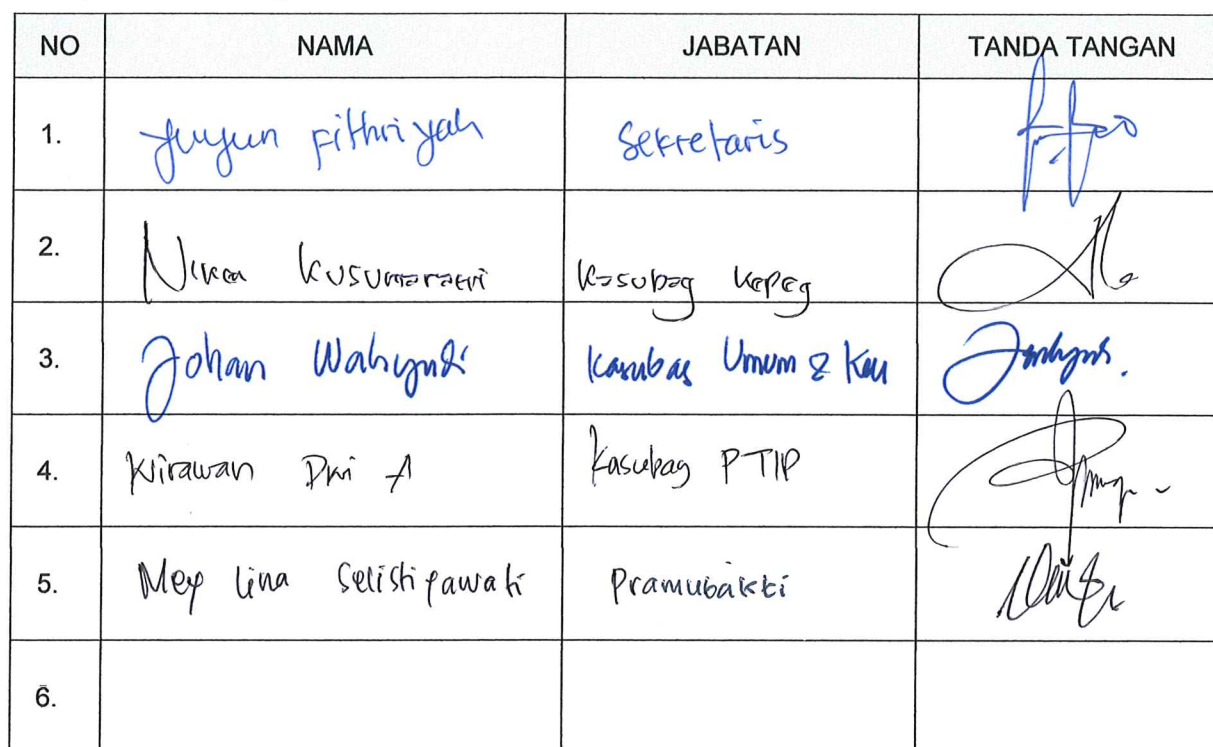 NO NAMA JABATAN TANDA TANGAN
1. Yuyun Fithriyah Sekretaris
2. Kasubag Kepeg
3. Johan Wahyudi Kasubag Umum & Keu
4. Wirawan Dwi A Kasubag PTIP
5. Mey Lina Pramubakti
6.